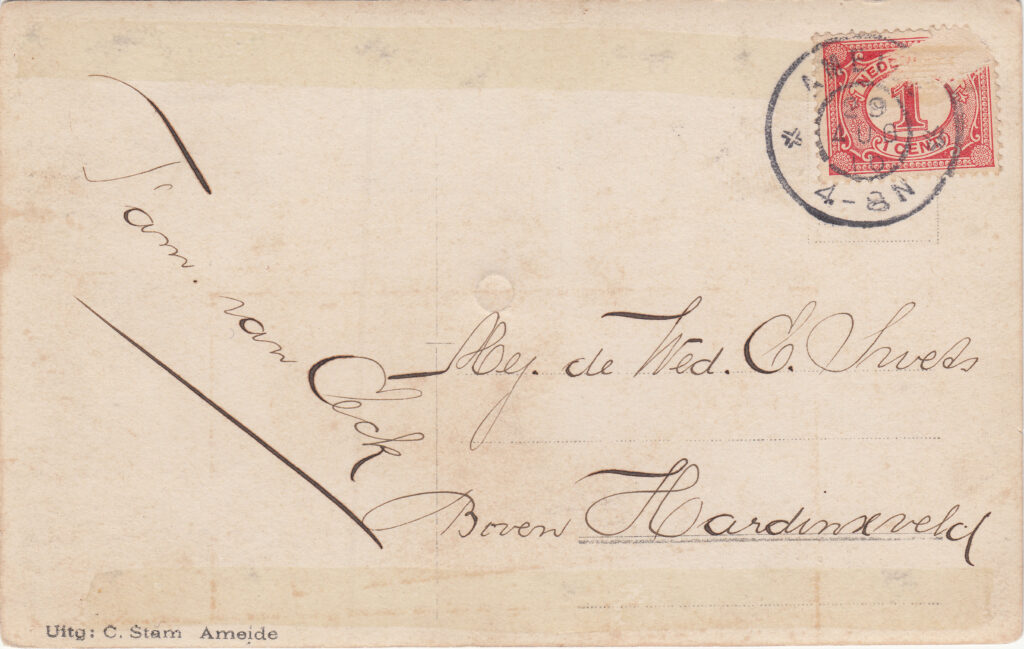 NEDE
1
1 CENT
4-8N
Fam. van Eeck
Mej. de Wed. C. Swets
Boven Hardinxveld
Uitg: C. Stam Ameide